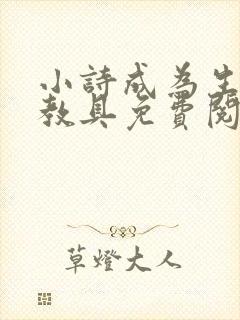 小詩成為生
教具免費閱
草燈大人